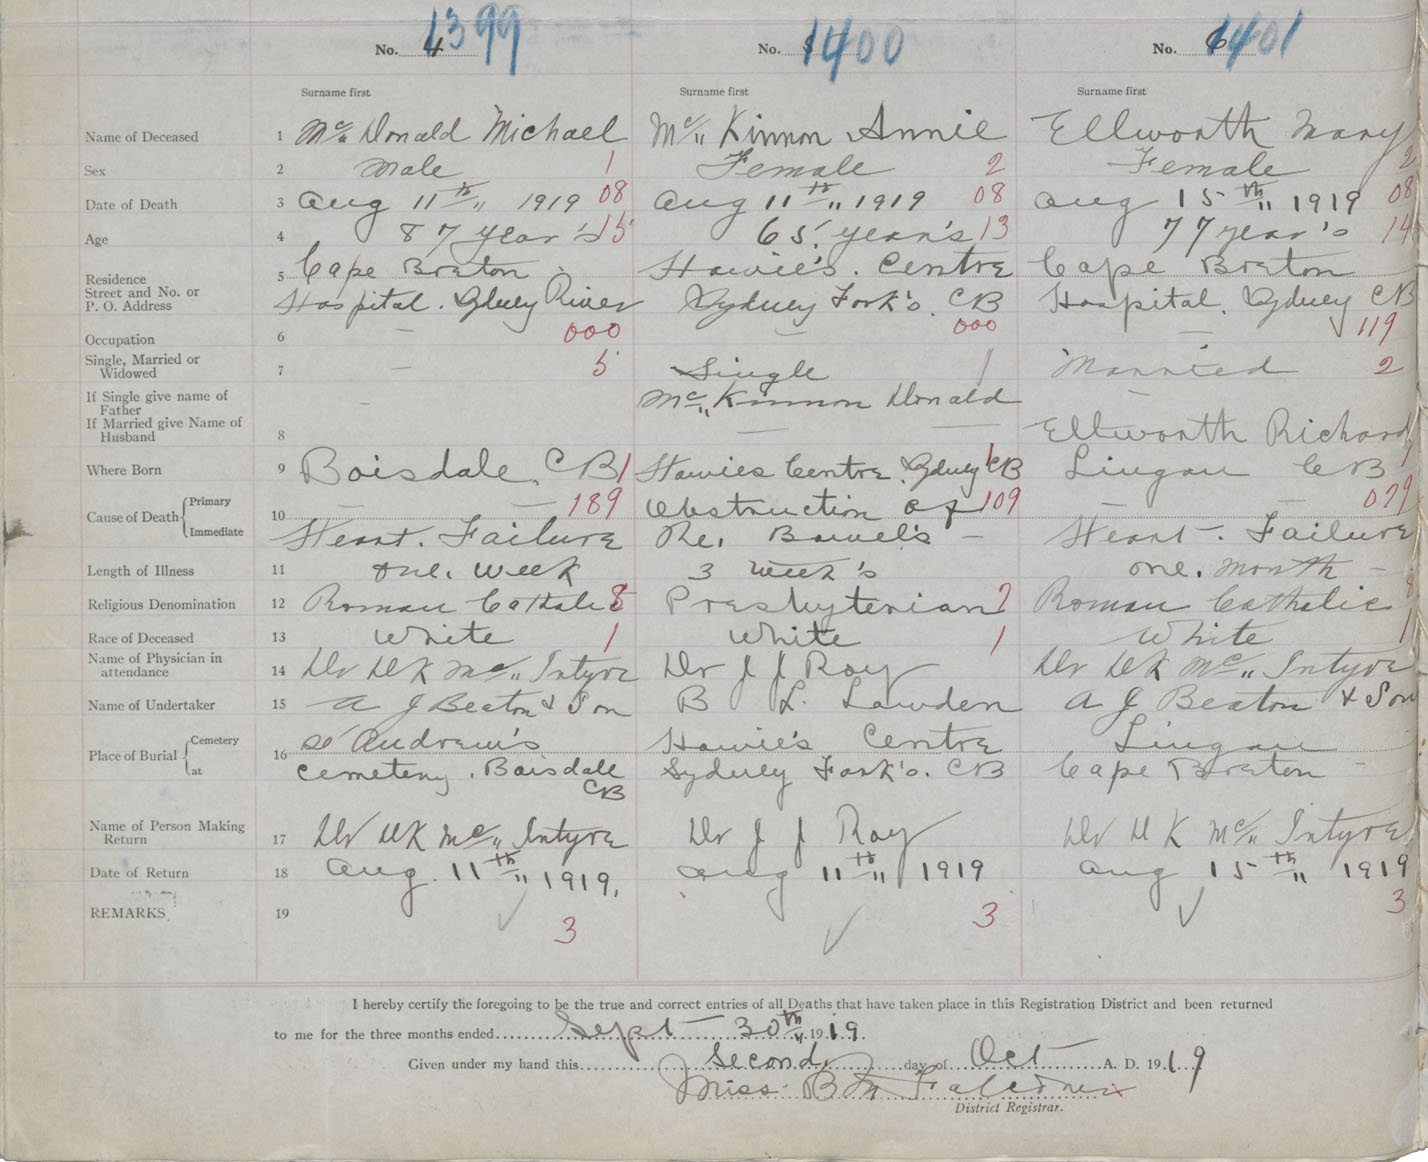 No. 4 1399 No. 1400 No. 6 1401
Surname first Surname first Surname first
Name of Deceased 1 Mc" Donald Michael Mc" Kinnon Annie Ellworth Mary
Sex 2 Male 1 Female 2 Female 2
Date of Death 3 Aug 11th" 1919 08 Aug 11th" 1919 08 Aug 15th" 1919 08
Age 4 87 year's 15 65. year's 13 77 year's 14
Residence 5 Cape Breton Howie's. Centre Cape Breton
Street and No. or
P. O. Address Hospital. Sydney River Sydney Fork's. CB Hospital. Sydney CB
Occupation 6 — 000 — 000 — 119
Single, Married or
Widowed 7 — 5 Single 1 Married 2
If Single give name of
Father - Mc" Kinnon Donald —
If Married give Name of
Husband 8 — — Ellworth Richard
Where Born 9 Boisdale. CB 1 Howies Centre. Sydney CB 1 Lingan CB
Cause of Death Primary 10 — — 189 Obstruction of 109 — — 079
Immediate Heart. Failure The. Bowel's — Heart-. Failure
Length of Illness 11 one. week 3 week's one. month —
Religious Denomination 12 Roman Catholic 8 Presbyterian 7 Roman Catholic 8
Race of Deceased 13 White 1 White 1 White 1
Name of Physician in
attendance 14 Dr DK Mc" Intyre Dr J J Roy Dr DK Mc" Intyre
Name of Undertaker 15 A J Beaton & Son B L. Lowden A J Beaton & Son
Place of Burial Cemetery 16 St Andrew's Howie's Centre Lingan
at Cemetery. Boisdale CB Sydney Fork's. CB Cape Breton -
Name of Person Making
Return 17 Dr DK Mc" Intyre Dr J J Roy Dr D K Mc" Intyre
Date of Return 18 Aug. 11th" 1919. Aug 11th" 1919 Aug 15th" 1919
REMARKS 19 3 3 3
I hereby certify the foregoing to be the true and correct entries of all Deaths that have taken place in this Registration District and been returned
to me for the three months ended Sept 30th" 1919.
Given under my hand this Second day of Oct A. D. 1919
Miss. B M
District Registrar.